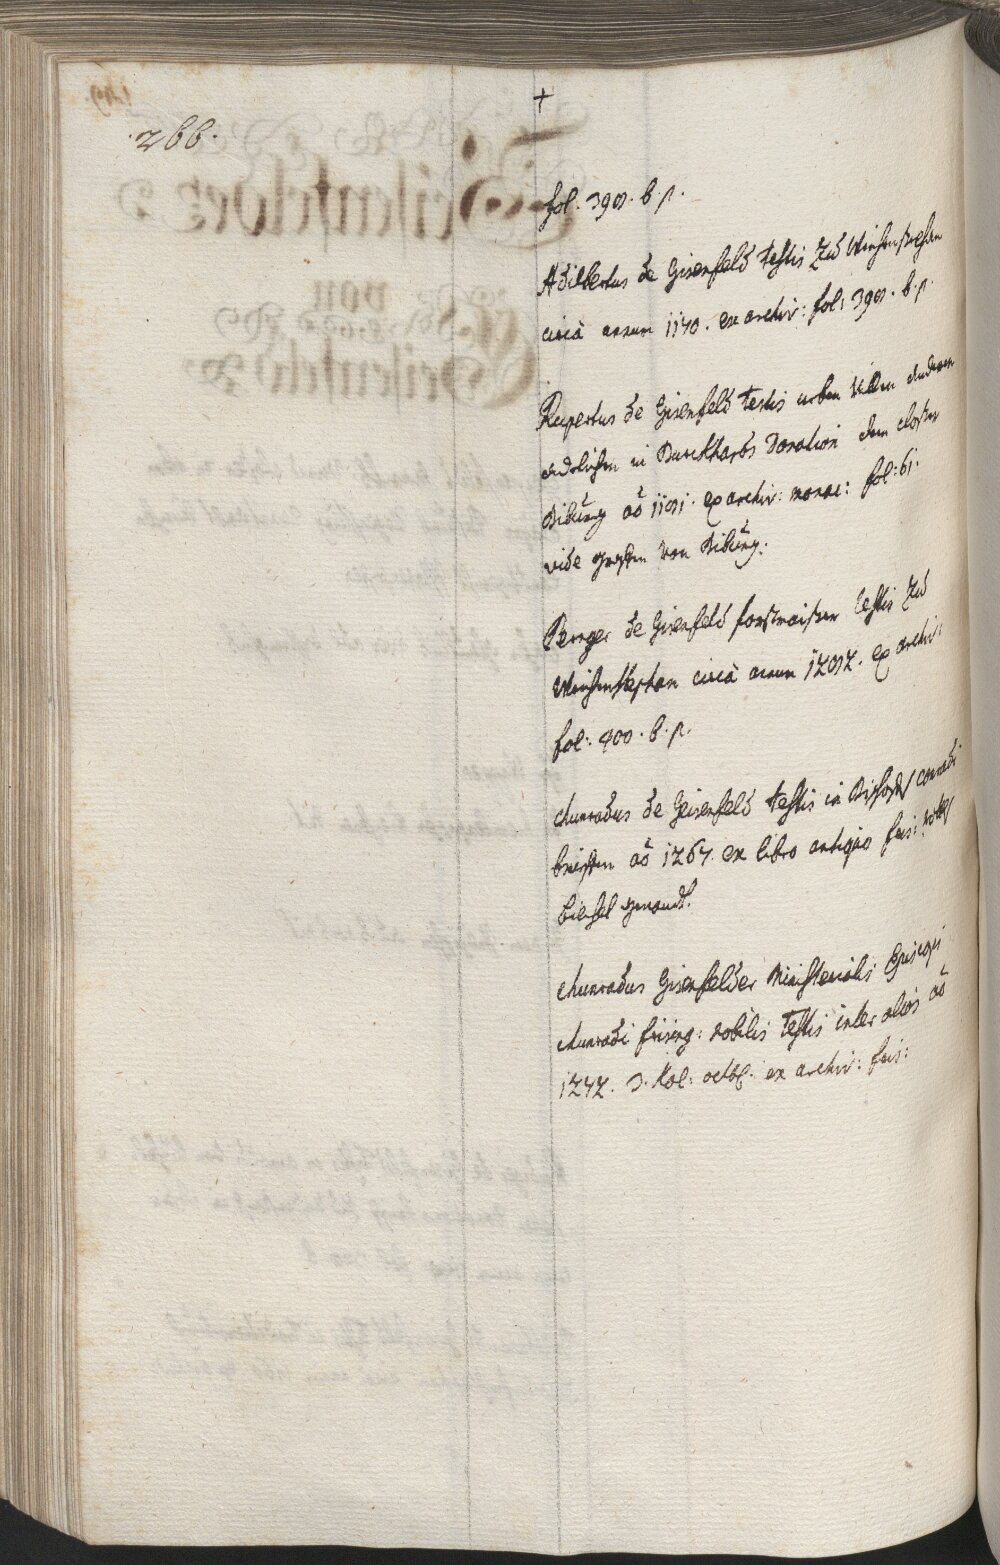 ·266·
+
fol. 390. b. p.
Adilbertus de Gisenfeld testis zu Weichenstephan
circà annum 1140. ex archiv: fol: 390. b. p.
Rupertus de Gisenfeld testis neben villen anderen
adelichen in Burckhards Donation dem closter
Bibŭrg aō 1191. ex archiv: monac: fol: 61.
vide graffen von Bibŭrg.
Pernger de Gisenfeld forstmaister testis zu
Weichenstephan circà annum 1292. ex archiv:
fol: 400. b. p.
chunradus de Geisenfeld testis in Bischoffs conradi
brieffen aō 1267. ex libro antiquo fris: rottes
biechel genandt.
chunradus Gisenfelder Ministerialis Episcopi
chunradi frising: nobilis testis inter alios aō
1242. 3. Kal: octob. ex archiv: fris: